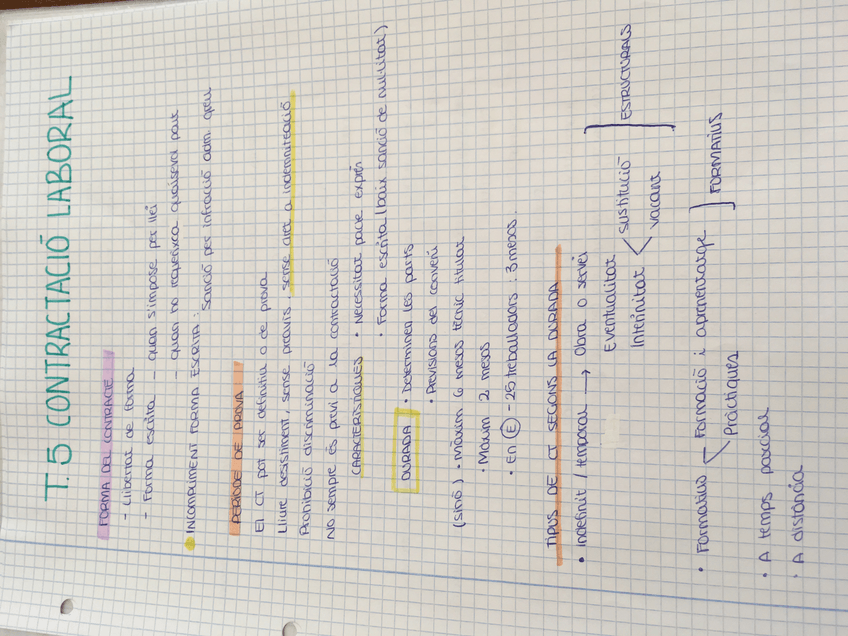 T.5 CONTRACTACIÓ LABORAL
FORMA DEL CONTRACTE
- Llibertat de forma
- Forma escrita - quan s'imposa per llei
- quan ho requereixca qualsevol part
• INCOMPLIMENT FORMA ESCRITA:
Sanció per infracció adm. greu
PERÍODE DE PROVA
El CT pot ser definitiu o de prova
Lliure desistiment, sense preavís, sense dret a indemnització
Prohibició discriminació
No sempre és previ a la contractació
CARACTERÍSTIQUES • Necessitat pacte exprés
• Forma escrita (baix sanció de nul·litat)
DURADA • Determinen les parts
• Previsions del conveni
(sinó) • Màxim 6 mesos tècnic titulat
• Màxim 2 mesos
• En E - 25 treballadors : 3 mesos.
TIPUS DE CT SEGONS LA DURADA
• Indefinit / temporal → Obra o servei
Eventualitat
Interinitat < sustitució
vacant
ESTRUCTURALS
• Formatiu < Formació i aprenentatge
Pràctiques
FORMATIUS
• A temps parcial
• A distància